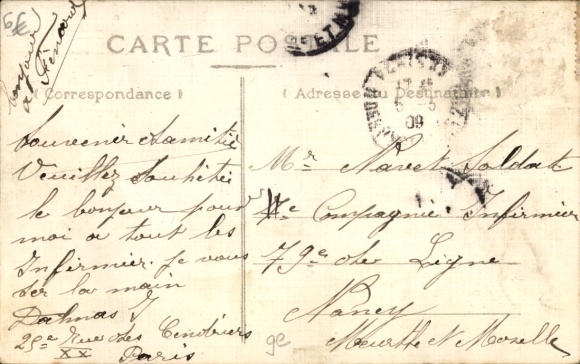 Bonjour
à Fénard
CARTE POSTALE
Correspondance
Adresse du Destinataire
17
5 - 5
09
Souvenir damitié
Veuillez Souhétié
le bonjour pour
moi a tout les
Infirmier. je vous
ser la main
Dalmas J
25e Rue des Cendriers
XX Paris
Mr Navet Soldat
4e Compagnie Infirmier
79e de Ligne
Nancy
Meurthe et Moselle
9e